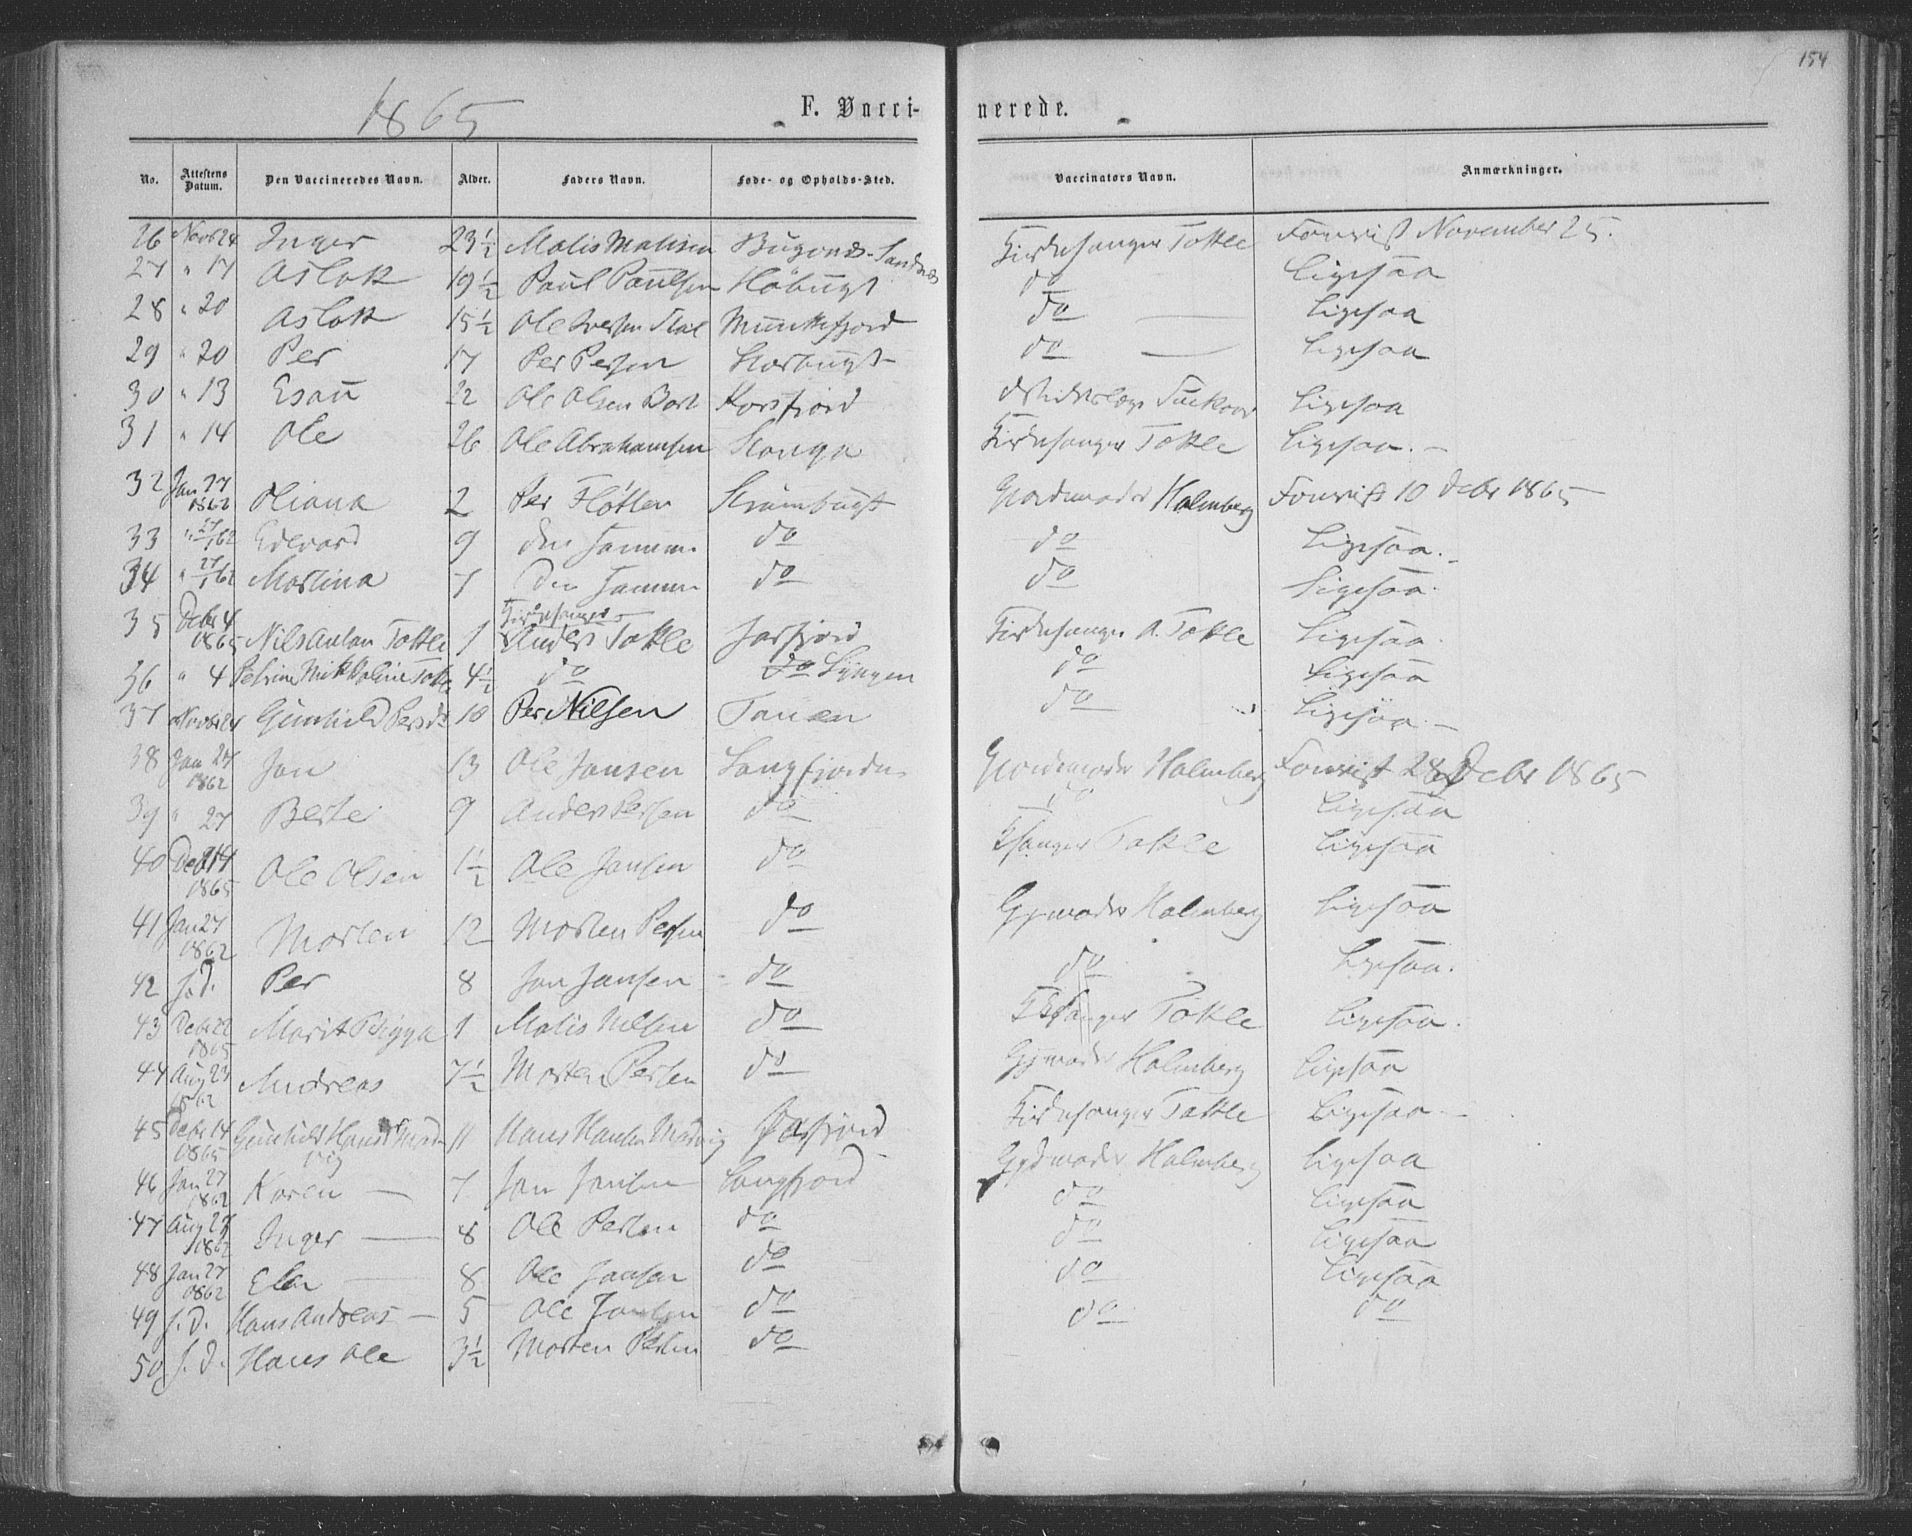 154
1865
F. Vacci- nerede.
No. Attestens Datum. Den Vaccineredes Navn. Alder. Faders Navn. Føde- og Opholds-Sted. Vaccinators Navn. Anmærkninger.
26 Novbr 24 Inger 23 1/2 Matis Matisen Bugønes-Sandnes Kirkesanger Tokle Forevist November 25.
27 " 17 Aslak 19 1/2 Paul Paulsen Høbugt do Ligesaa
28 " 20 Aslak 15 1/2 Ole Iversen Munkefjord do — Ligesaa
29 " 20 Per 17 Per Persen Storbugt do — Ligesaa
30 " 13 Esau 22 Ole Olsen Korsfjord Ligesaa
31 " 14 Ole 26 Ole Abrahamsen Kirkesanger Tokle Ligesaa. —
32 Jan 27 1862 Oliana 2 Per Fløtten Strømbugt Gjordemoder Holmberg Forevist 10 Debr 1865
33 " 27/1 62 Edevard 9 den Samme. do do Ligesaa. —
34 " 27/1 62 Martina 7 den Samme do do Ligesaa.
35 Debr 4 1865 Nils Anton Tokle 1 Kirkesanger Anders Tokle Jarfjord Kirkesanger A. Tokle Ligesaa.
36 " 4 Petrine Nikkoline Tokle 4 1/2 do do Lyngen do Ligesaa
37 Novbr 24 Gunhild Persdr 10 Per Nilsen Tanen do Ligesaa. —
38 Jan 27 1862 Jon 13 Ole Jonsen Langfjorden Gjordemoder Holmberg Forevist 28 Debr 1865
39 " 27 Berte 9 Anders Persen do do Ligesaa
40 Debr 14 1865 Ole Olsen 1 1/2 Ole Jonsen do Ksanger Tokle Ligesaa
41 Jan 27 1862 Morten 12 Morten Persen do Gjmoder Holmberg Ligesaa
42 s. d. Per 8 Jon Jonsen do do Ligesaa.
43 Debr 22 1865 Marit Bigga 1 Matis Nilsen do Ksanger Tokle Ligesaa.
44 Aug 23 1862 Andreas 7 1/2 Morten Persen do Gjmoder Holmberg Ligesaa
45 Debr 14 1865 Gunhild Hansdr Madvig 11 Hans Hansen Madvig Jarfjord Kirkesanger Tokle Ligesaa —
46 Jan 27 1862 Karen — 7 Jon Jonsen Langfjord Gjdmoder Holmberg Ligesaa
47 Aug 27 1862 Inger — 8 Ole Persen do do Ligesaa
48 Jan 27 1862 Elen — 8 Ole Jonsen do do Ligesaa
49 s. d. Hans Andreas — 5 Ole Jonsen do do Ligesaa
50 s. d. Hans Ole 3 1/2 Morten Persen do do do